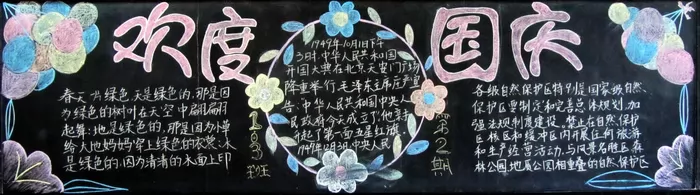 欢度国庆
春天为绿色,天是绿色的,那是因
为绿色的树叶在天空中翩翩
起舞:地是绿色的,那是因为小草
给大地妈妈穿上绿色的衣裳:水
是绿色的,因为清清的水面上印
163班
1949年10月1日下午
3时,中华人民共和国
开国大典在北京天安门广场
隆重举行,毛泽东主席庄严宣
告:中华人民共和国中央人
民政府今天成立了!他亲手
升起了第一面五星红旗。
1949年12月3日,中央人民
第2期
各级自然保护区特别是国家级自然
保护区要制定和完善总体规划,加
强法规制度建设,禁止在自然保护
区核区和缓冲区内开展任何旅游
和生产经营活动,与风景名胜区森
林公园地质公园相重叠的自然保护区